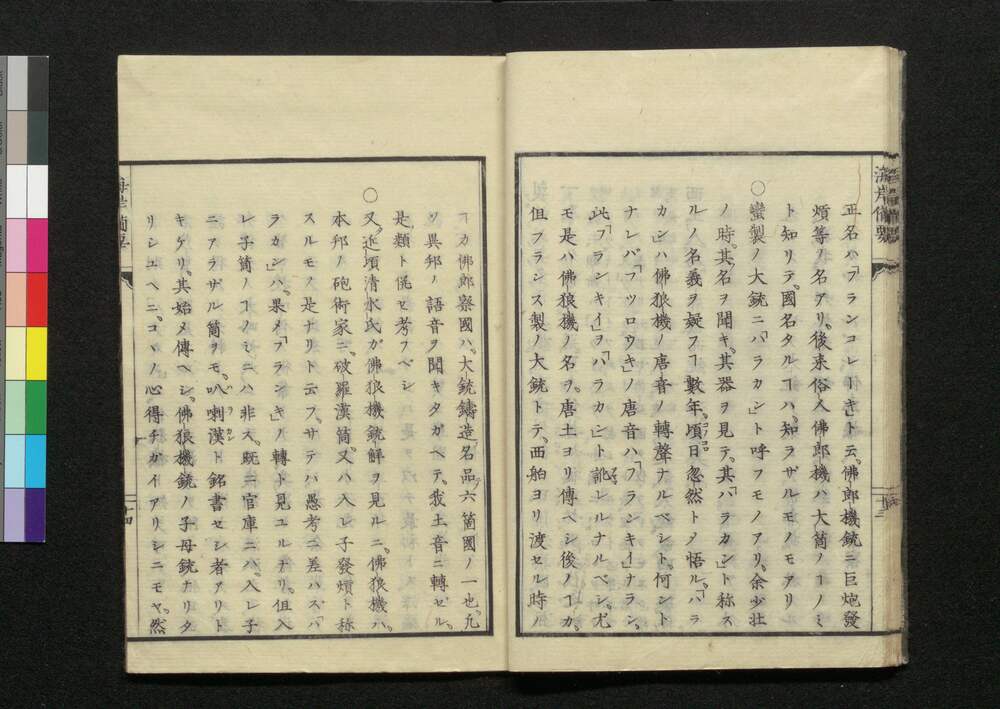 海岸備要
正名ハ「フランコレーキ」ト云。佛郎機銃ニ巨炮發
煩等ノ名アリ。後来俗人佛郎機ハ大筒ノヿノミ
ト知リテ。國名タルヿハ。知ラザルモノモアリ
○蠻製ノ大銃ニ「ハラカン」ト呼フモノアリ。余少壮
ノ時。其名ヲ聞キ。其器ヲ見テ。其「バラカン」ト称ス
ルノ名義ヲ疑フヿ數年。頃日忽然トノ悟ル。「ハラ
カン」ハ佛狼機ノ唐音ノ轉聲ナルベシト。何ントナレバ
「フツロウキ」ノ唐音ハ「フランキイ」ナラン。
此「フランキイ」ヲ「ハラカン」ト訛レルナルベシ。尤
モ是ハ佛狼機ノ名ヲ。唐土ヨリ傳ヘシ後ノヿカ。
但フランス製ノ大銃トテ。西舶ヨリ渡セル時ノ
ヿカ佛郎察國ハ。大銃鑄造名品六箇國ノ一也。凡
ソ異邦ノ語音ヲ聞キタガヘテ。我土音ニ轉ゼル。
是類ト俤セ考フベシ
○又近頃清水氏ガ佛狼機銃解ヲ見ルニ。佛狼機ハ。
本邦ノ砲術家ニ。破羅漢筒。又ハ入レ子發煩ト称
スルモノ是ナリト云フ。サテハ愚考ニ差ハズ。「ハ
ラカン」ハ。果〆「フランキ」ノ轉ト見ユルナリ。但入
レ子筒ノヿノミニハ非ズ。既ニ官庫ニハ。入レ子
ニアラザル筒ヲモ。叭喇漢ト銘書セシ者アリト
キケリ。其始メ傳ヘシ。佛狼機銃ノ子母銃ナリタ
リシユヘニ。コヽノ心得チガイアリシニモヤ。然
十四